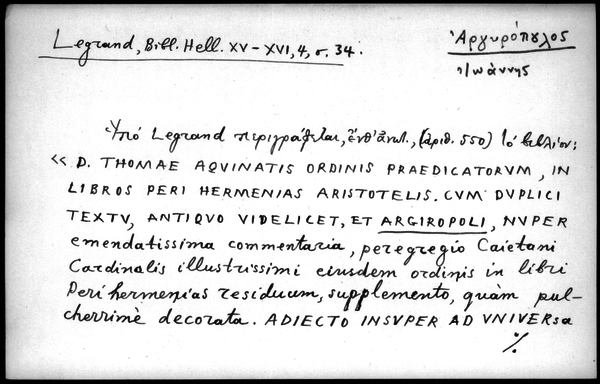 Legrand, Bibl. Hell. XV–XVI, 4, σ. 34.
Ἀργυρόπουλος
Ἰωάννης
Ὑπό Legrand περιγράφεται, ἔνθ' ἀνωτ., (ἀριθ. 550) τό βιβλίον:
« D. THOMAE AQVINATIS ORDINIS PRAEDICATORVM, IN
LIBROS PERI HERMENIAS ARISTOTELIS. CVM DVPLICI
TEXTV, ANTIQVO VIDELICET, ET ARGIROPOLI, NVPER
emendatissima commentaria, peregregio Caietani
Cardinalis illustrissimi eiusdem ordinis in libri
Peri hermenias residuum, supplemento, quàm pul-
cherrimè decorata. ADIECTO INSVPER AD VNIVERsa
%.